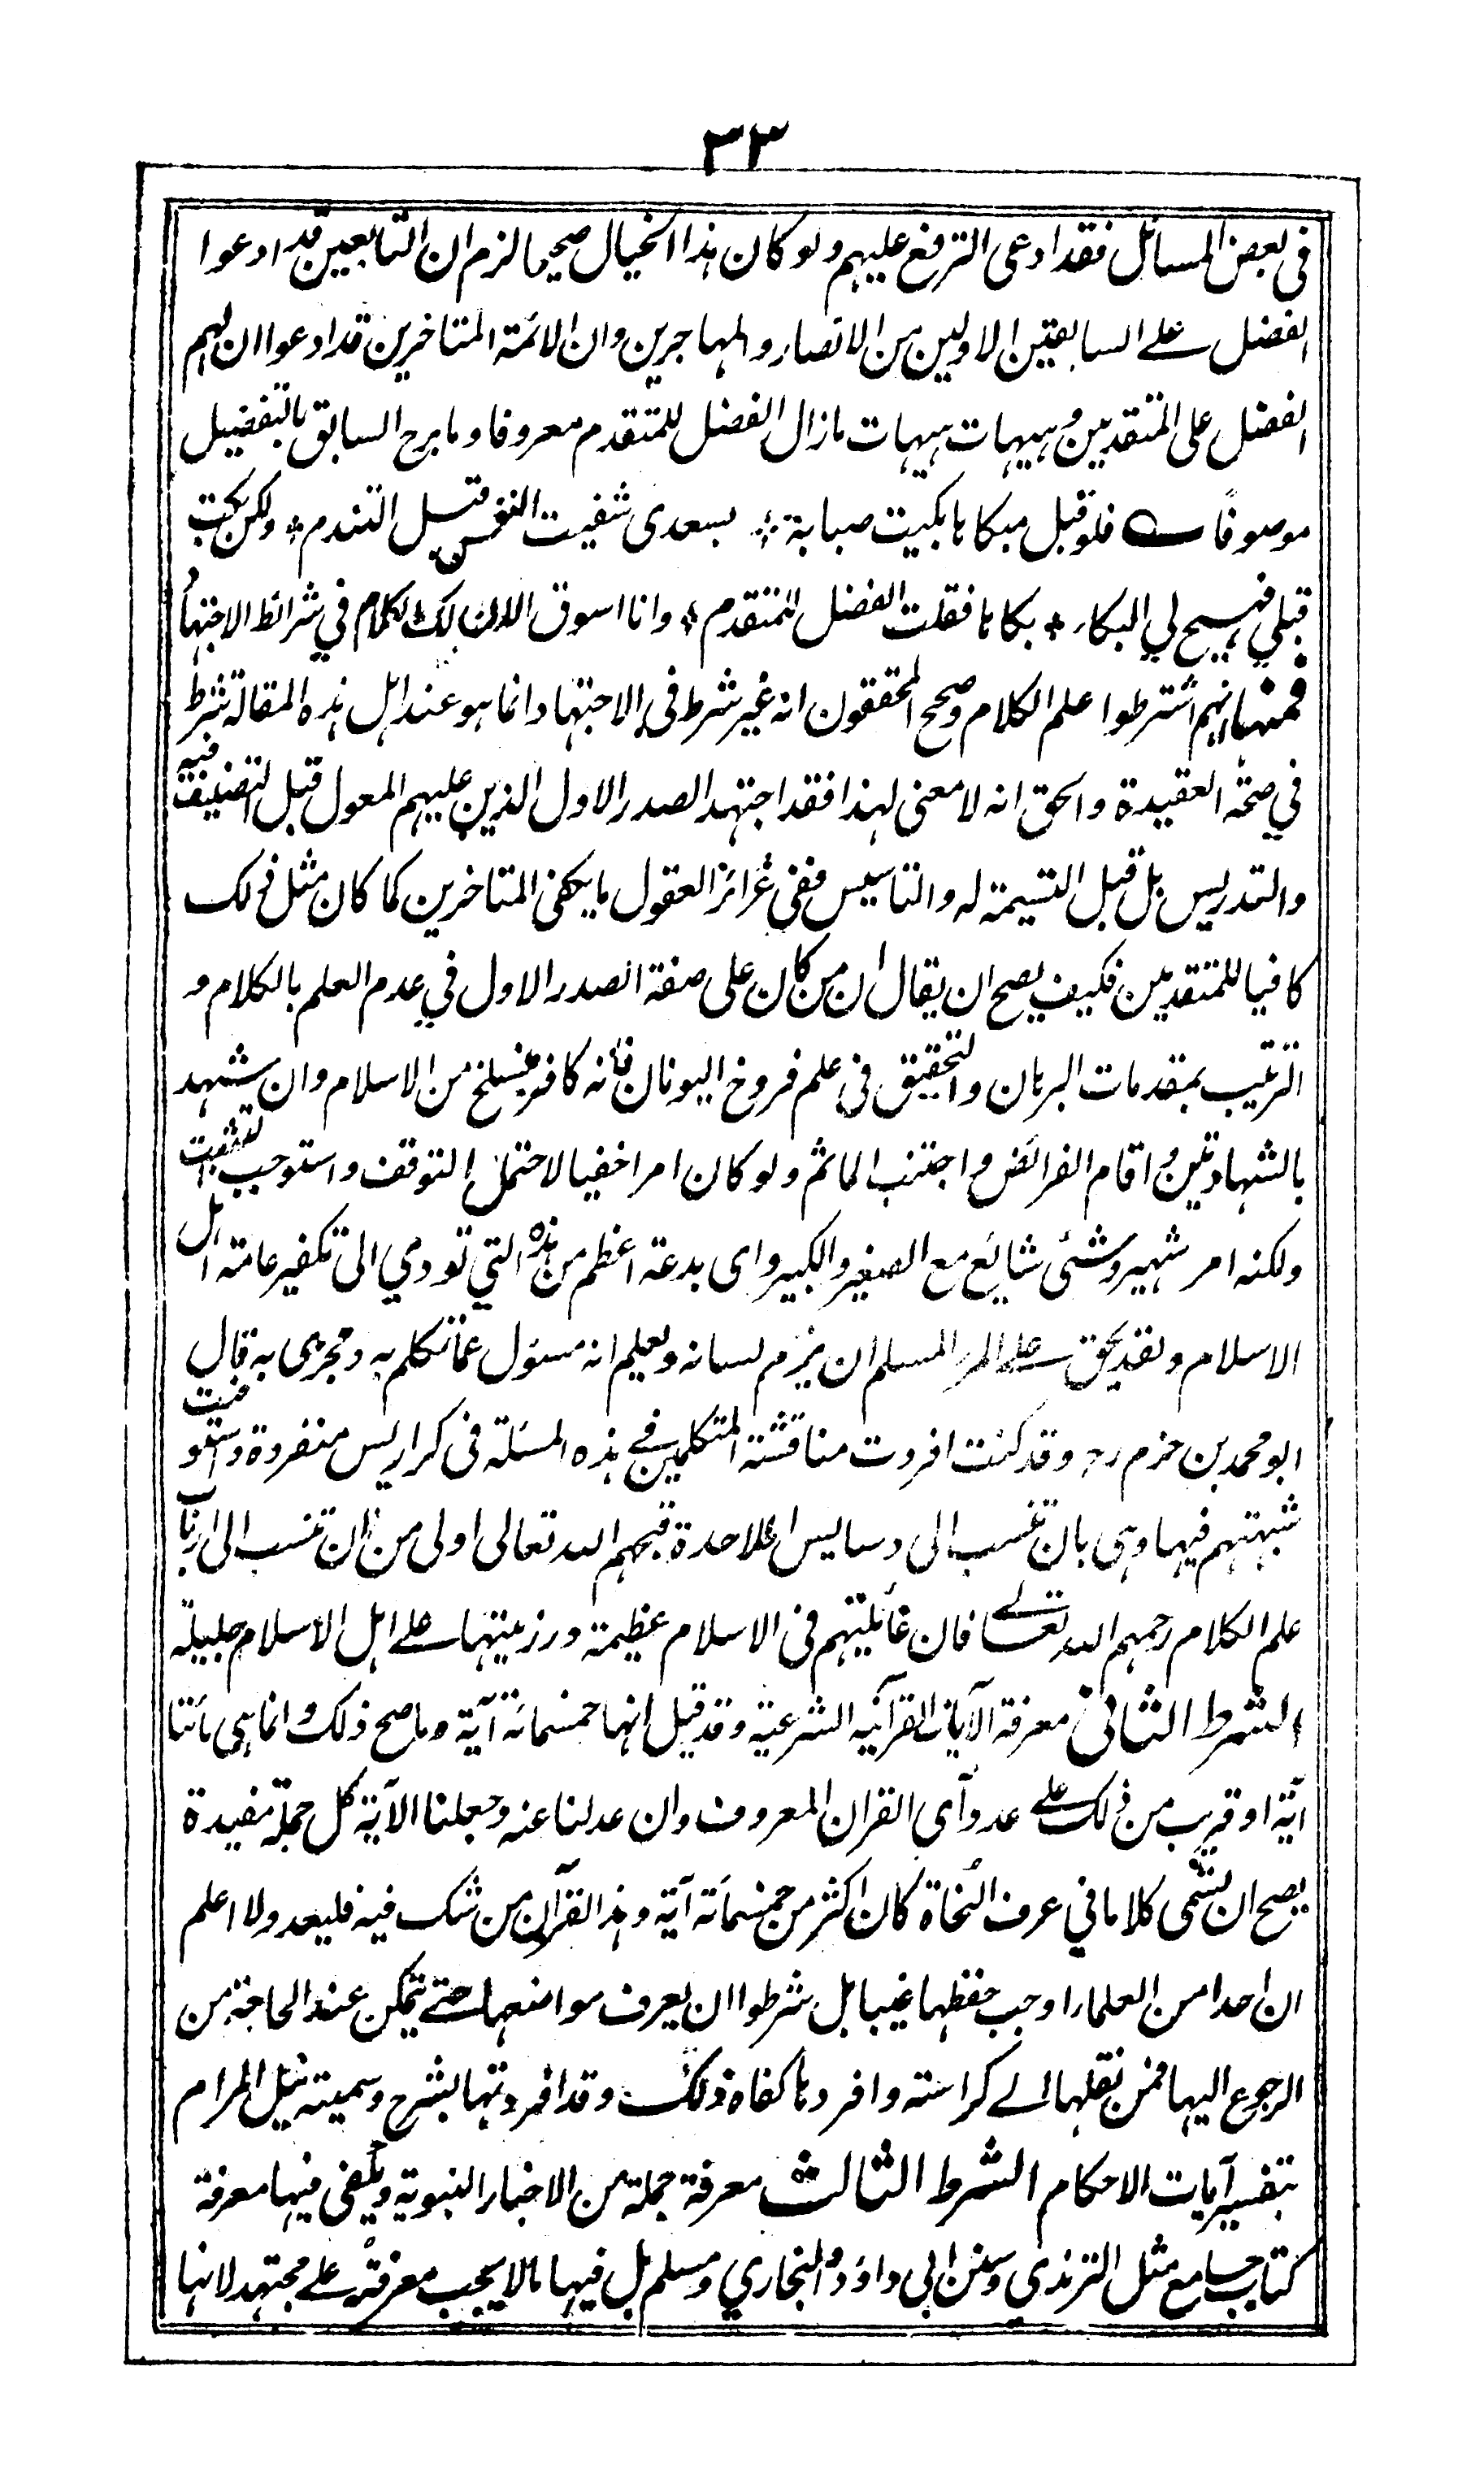 ٣٣
فى بعض المسائل فقد ادعى الترفع عليهم ولو كان هذا الخيال صحيحا لزم ان التابعين قد ادعوا
الفضل على السابقين الاولين من الانصار والمهاجرين وان الائمة المتاخرين قد ادعوا ان لهم
الفضل على المتقدمين وهيهات هيهات ما زال الفضل للمتقدم معروفا وما برح السابق بالتفضيل
موصوفا فلو قبل مبكاها بكيت صبابة بسعدى شفيت النفس قبل التندم ولكن بكت
قبلي فهيج لي البكاء بكاها فقلت الفضل للمتقدم وانا اسوق الان لك الكلام في شرائط الاجتهاد
فمنها انهم اشترطوا علم الكلام وصحح المحققون انه غير شرط فى الاجتهاد وانما هو عند اهل هذه المقالة شرط
في صحة العقيدة والحق انه لا معنى لهذا فقد اجتهد الصدر الاول الذين عليهم المعول قبل التصنيف فيه
والتدريس بل قبل التسمية له والتاسيس ففى غرائز العقول ما يكفى المتاخرين كما كان مثل ذلك
كافيا للمتقدمين فكيف يصح ان يقال ان من كان على صفة الصدر الاول في عدم العلم بالكلام و
الترتيب بمقدمات البرهان والتحقيق فى علم فروخ اليونان فانه كافر منسلخ من الاسلام وان شهد
بالشهادتين واقام الفرائض واجتنب الماثم ولو كان امرا خفيا لاحتمل التوقف واستوجب التثبت
ولكنه امر شهير وشئى شايع مع الصغير والكبير واى بدعة اعظم من هذه التي تودي الى تكفير عامة اهل
الاسلام ولقد يحق على المرء المسلم ان يزم لسانه وليعلم انه مسؤل عما تكلم به ومجزى به قال
ابو محمد بن حزم رح وقد كنت افردت مناقشة المتكلمين في هذه المسئلة فى كراريس منفردة واستوفيت
شبهتهم فيها وهى بان تنسب الى دسايس الملاحدة قبحهم الله تعالى اولى من ان تنسب الى ارباب
علم الكلام رحمهم الله تعالے فان غائلتهم فى الاسلام عظيمة ورزيتها على اهل الاسلام جليلة
الشرط الثانى معرفة الآيات القرآنيه الشرعية وقد قيل انها خمسمائة آية وما صح ذلك وانما هي مائتا
آية او قريب من ذلك على عد وآى القران المعروف وان عدلنا عنه وجعلنا الآية كل جملة مفيدة
يصح ان تسمى كلاما في عرف النحاة كان اكثر من خمسمائة آية وهذا القرآن من شك فيه فليعد ولا اعلم
ان احدا من العلماء اوجب حفظها غيبا بل شرطوا ان يعرف مواضعها حتے يتمكن عند الحاجة من
الرجوع اليها فمن نقلها الے كراسته وافردها كفاه ذلك وقد افردتها بشرح وسميته نيل المرام
بتفسير آيات الاحكام الشرط الثالث معرفة جملة من الاخبار النبوية ويكفى فيها معرفة
كتاب جامع مثل الترمذي وسنن ابى داؤد والبخاري ومسلم بل فيها ما لا يجب معرفته على مجتهد لانها